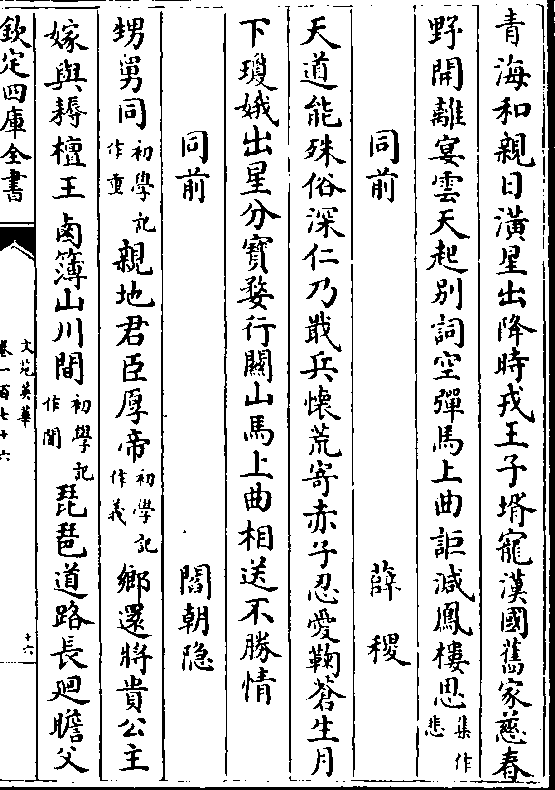 青海和親日潢星出降時戎王子壻寵漢國舊家慈春
野開離宴雲天起別詞空彈馬上曲詎減鳳樓思集作悲
同前 薛稷
天道能殊俗深仁乃戢兵懷荒寄赤子忍愛鞠蒼生月
下瓊娥出星分寶婺行關山馬上曲相送不勝情
同前 閻朝隐
甥舅同初學記作重親地君臣厚帝初學記作義鄉還將貴公主
嫁與耨檀王鹵簿山川間初學記作闇琵琶道路長廻瞻父
欽定四庫全書
文苑英華
卷一百七十六
十六